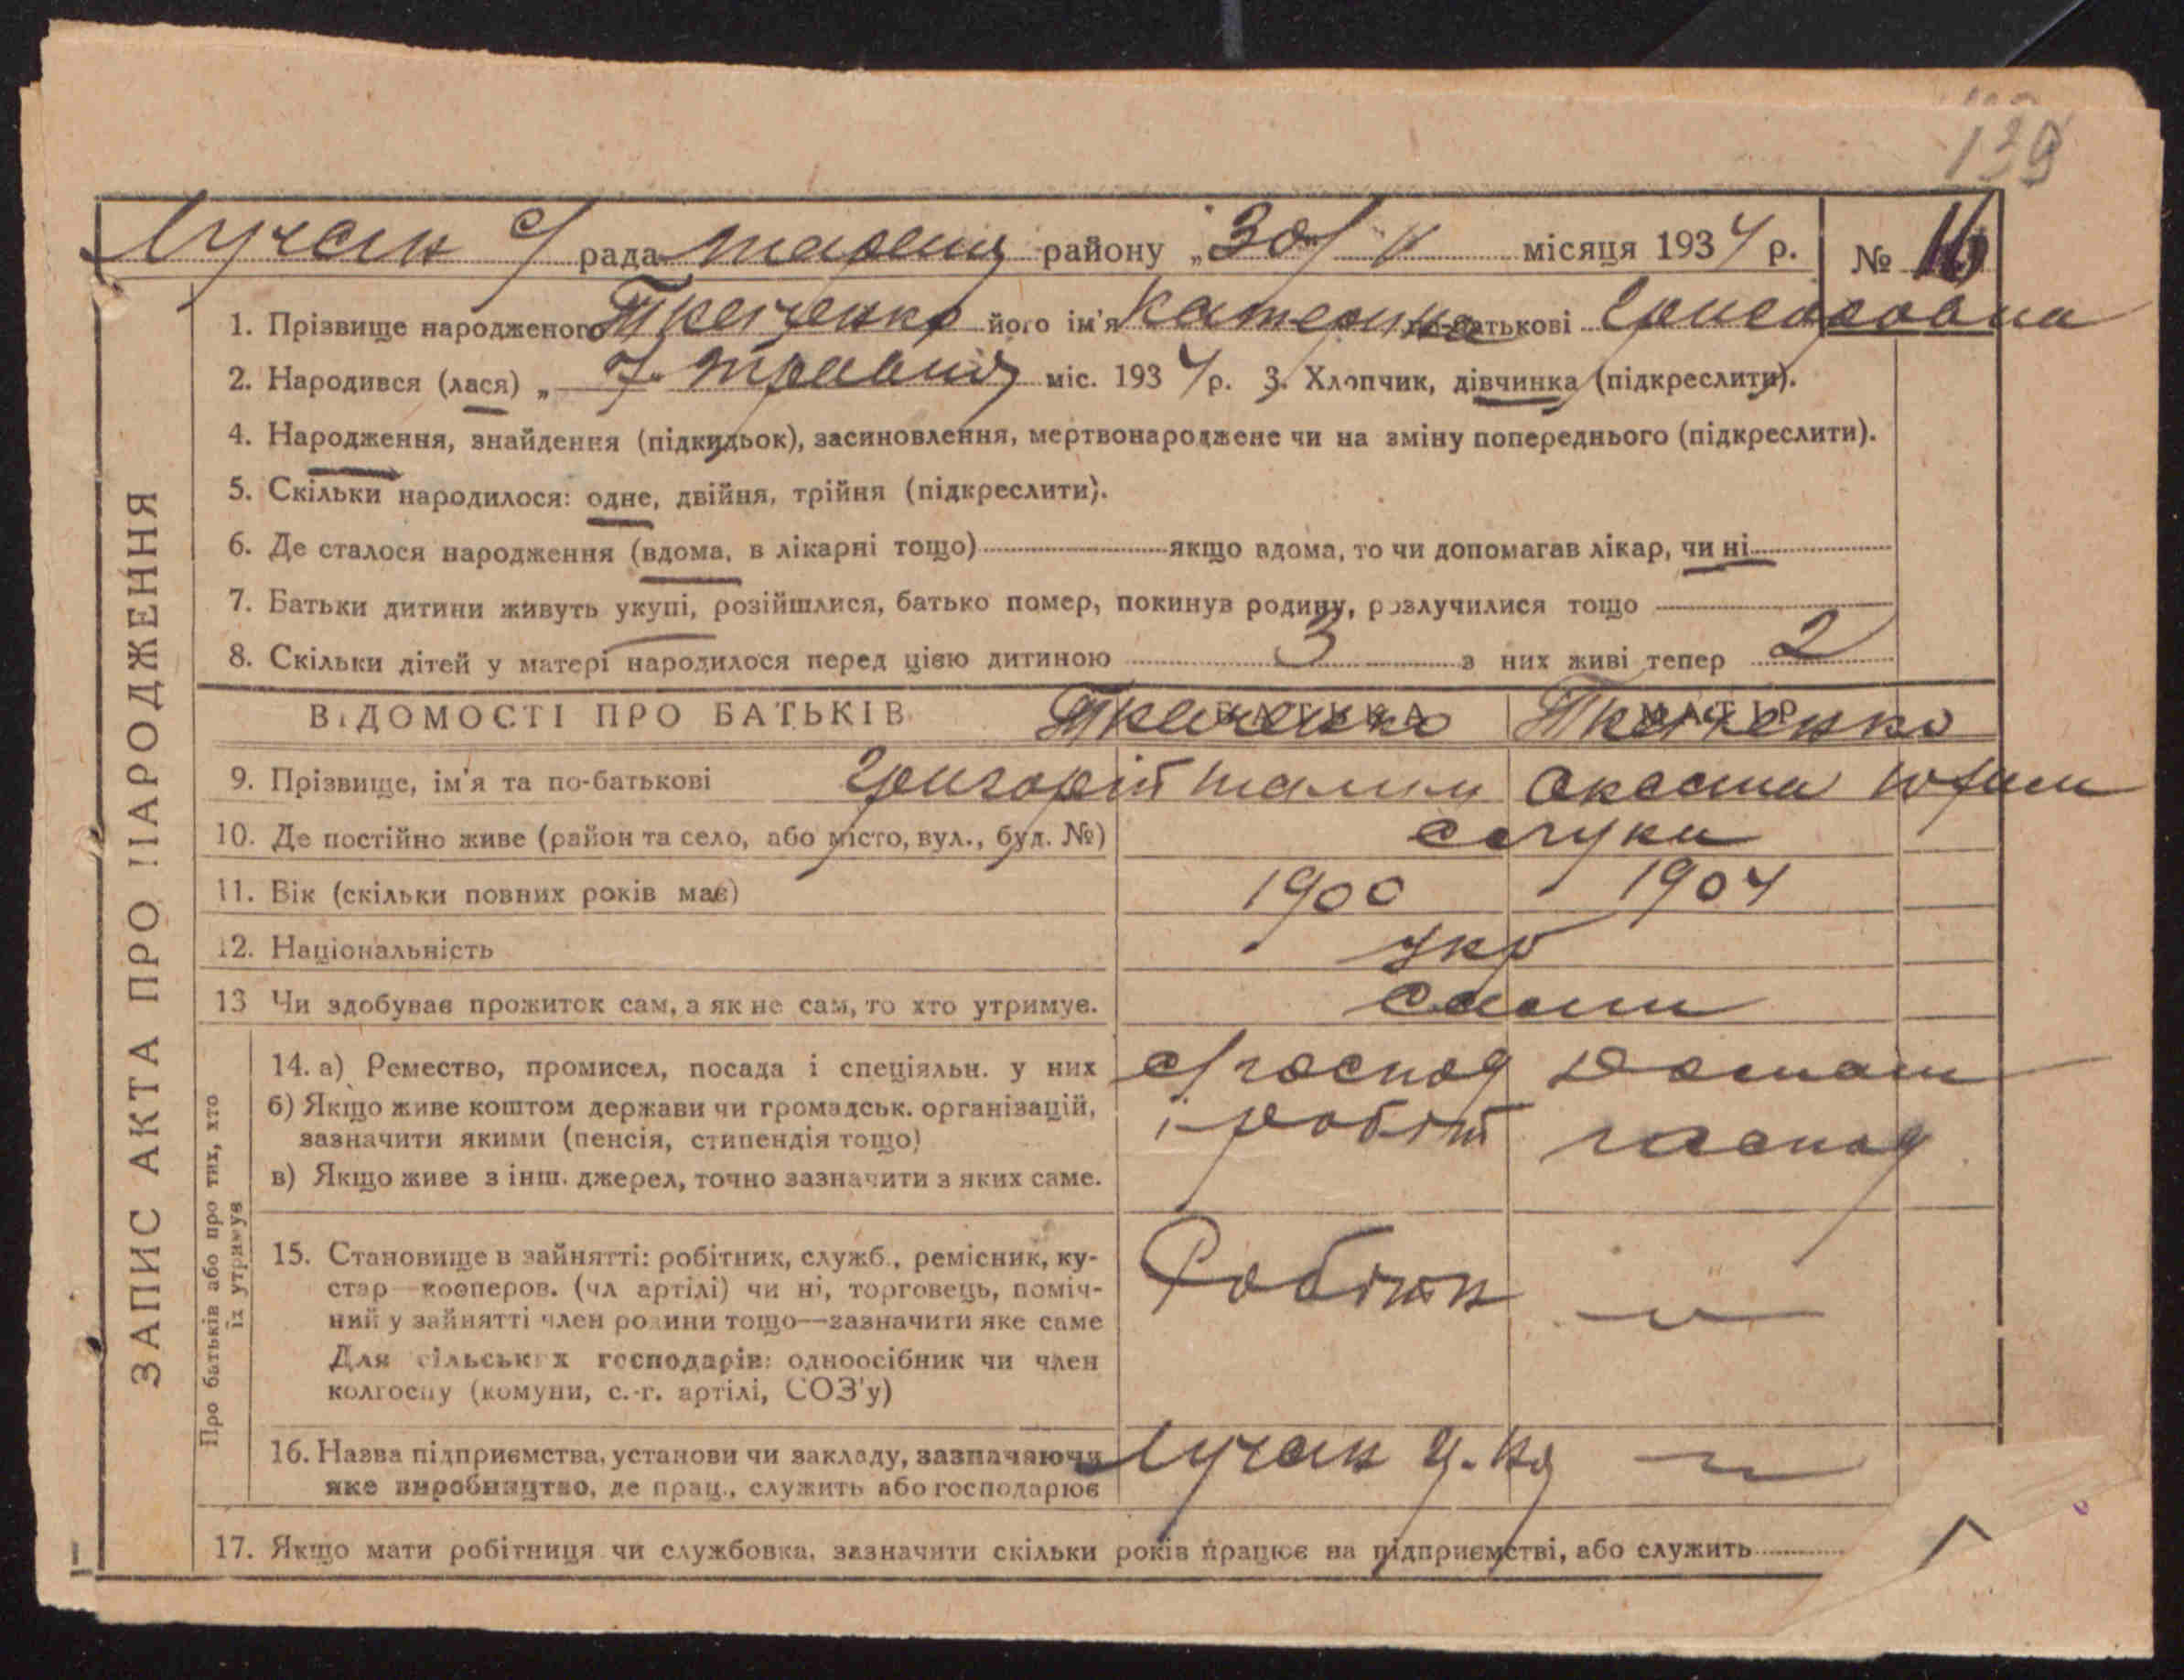 139
Лучан с/ рада Таращ району „30/ V місяця 1934 р. № 16
ЗАПИС АКТА ПРО НАРОДЖЕННЯ
1. Прізвище народженого Ткаченко його ім'я Катерина по-батькові Григоровна
2. Народився (лася) „ 7 травня міс. 1934 р. 3. Хлопчик, дівчинка (підкреслити).
4. Народження, знайдення (підкидьок), засиновлення, мертвонароджене чи на зміну попереднього (підкреслити).
5. Скільки народилося: одне, двійня, трійня (підкреслити).
6. Де сталося народження (вдома, в лікарні тощо) якщо вдома, то чи допомагав лікар, чи ні
7. Батьки дитини живуть укупі, розійшлися, батько помер, покинув родину, розлучилися тощо
8. Скільки дітей у матері народилося перед цією дитиною 3 з них живі тепер 2
ВІДОМОСТІ ПРО БАТЬКІВ БАТЬКА Ткаченко МАТІР Ткаченко
9. Прізвище, ім'я та по-батькові Григорій Оксана Юфим
10. Де постійно живе (район та село, або місто, вул., буд. №)
11. Вік (скільки повних років має) 1900 1904
12. Національність Укр
13 Чи здобуває прожиток сам, а як не сам, то хто утримує. сами
Про батьків або про тих, хто їх утримує
14. а) Ремество, промисел, посада і спеціяльн. у них с/господ Домаш
б) Якщо живе коштом держави чи громадськ. організацій, і робіт господ
зазначити якими (пенсія, стипендія тощо)
в) Якщо живе з інш. джерел, точно зазначити з яких саме.
15. Становище в зайнятті: робітник, служб., ремісник, ку- Робітн — " —
стар—кооперов. (чл артілі) чи ні, торговець, поміч-
ний у зайнятті член родини тощо—зазначити яке саме
Для сільських господарів: одноосібник чи член
колгоспу (комуни, с.-г. артілі, СОЗ'у)
16. Назва підприємства, установи чи закладу, зазначаючи Лучан
яке виробництво, де прац., служить або господарює
17. Якщо мати робітниця чи службовка, зазначити скільки років працює на підприємстві, або служить